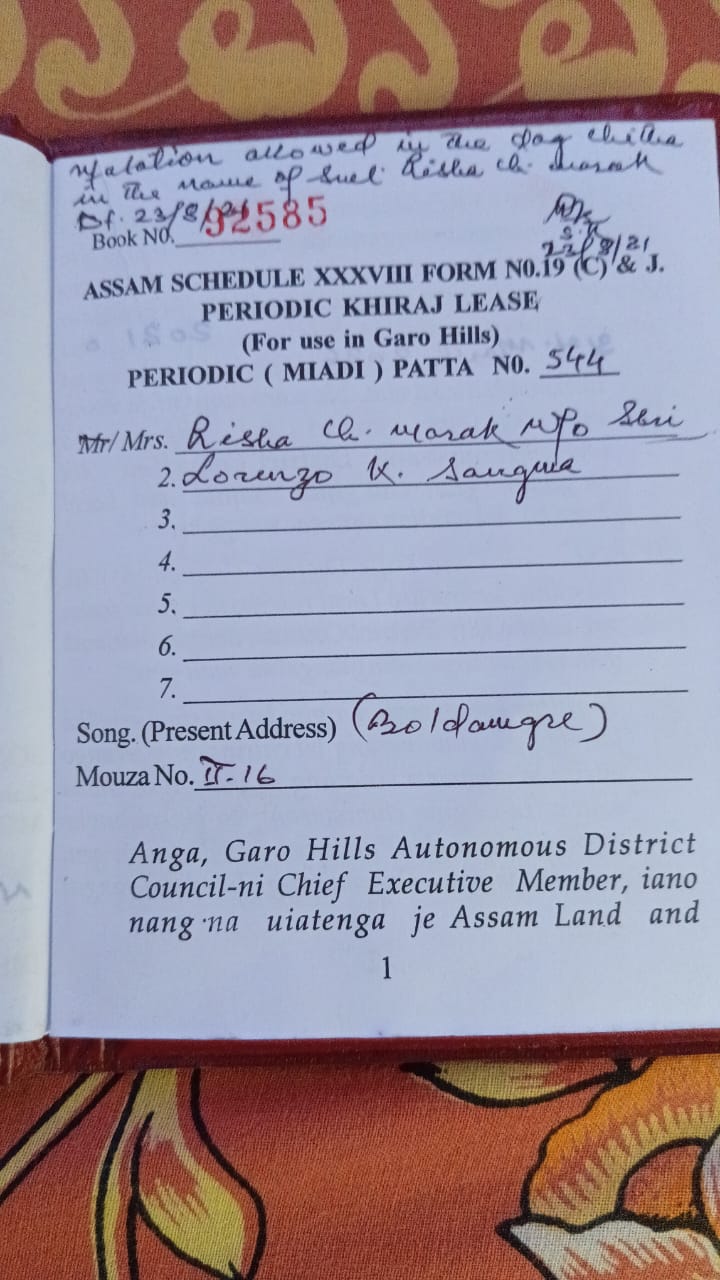 Mutation allowed in the dag chitha
in the name of Smt. Risha ch. marak
Dt. 23/8/21
Book N0. 92585
S.K
23/8/21
ASSAM SCHEDULE XXXVIII FORM N0.19 (C) & J.
PERIODIC KHIRAJ LEASE
(For use in Garo Hills)
PERIODIC ( MIADI ) PATTA N0. 544
Mr/ Mrs. Risha Ch. marak W/o Shri
2. Lorenzo K. Sangma
3.
4.
5.
6.
7.
Song. (Present Address) (Boldamgre)
Mouza No. II-16
Anga, Garo Hills Autonomous District
Council-ni Chief Executive Member, iano
nang·na uiatenga je Assam Land and
1